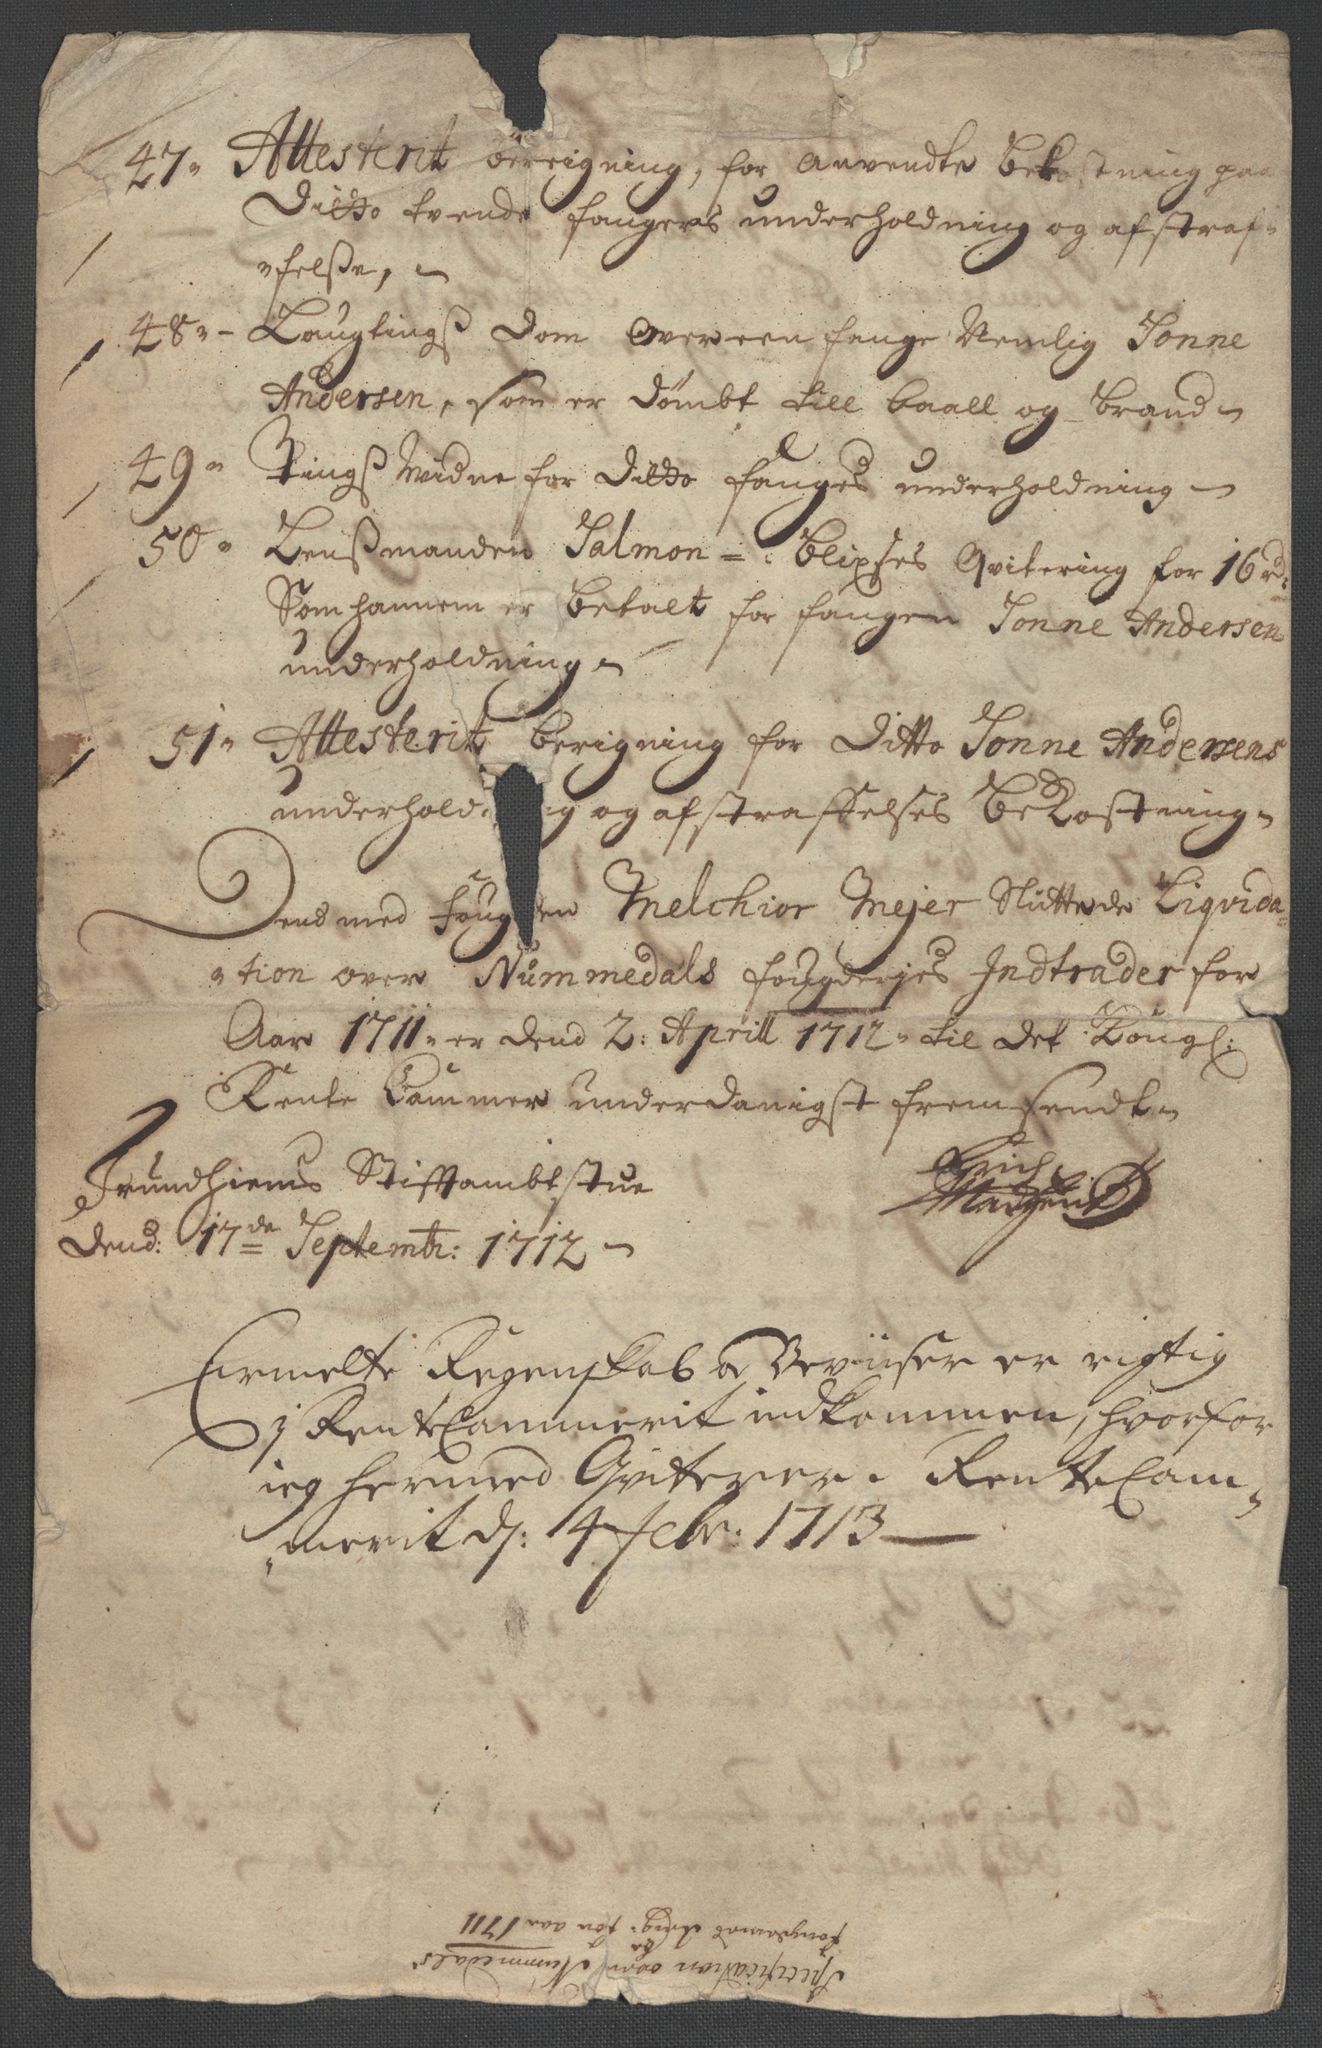 47„ Attesterit bereigning, for anvendte bekostning paa
Ditto tvende fangers underholdning og afstraf„
„felße, „
48„ – Laugtingß Dom over een fange Nemlig Jonne
Andersen, som er dömbt till baall og brand„
49„ Tingß Widne for Ditto fanges underholdning„
50„ Lenßmanden Salmon = Blixses Qvitering for 16 rd:
Som hannem er betalt for fangen Jonne Andersen
underholdning„
51„ Attesterit berigning for Ditto Jonne Andersens
underhold ng og afstraffelses bekostning„
Dend med foug en Melchior Mejer Sluttede Liqvida„
„tion over Nummedals fougderjes Indtrader for
Aar 1711„ er dend 2: Aprill 1712„ til det Kongl:
Rente Cammer underdanigst fremsendt„
Trundhiems Stiftambtstue
Dend: 17de Septembr: 1712„
Erich
Madtzen
Ermelte Regenskab & Beviiser er rigtig
j RenteCammerit indkommen, hvorfor
ieg hermed Qviterer. RenteCam„
„merit d: 4 Febr: 1713
Specification over Nummedals
fougderies for aar 1711